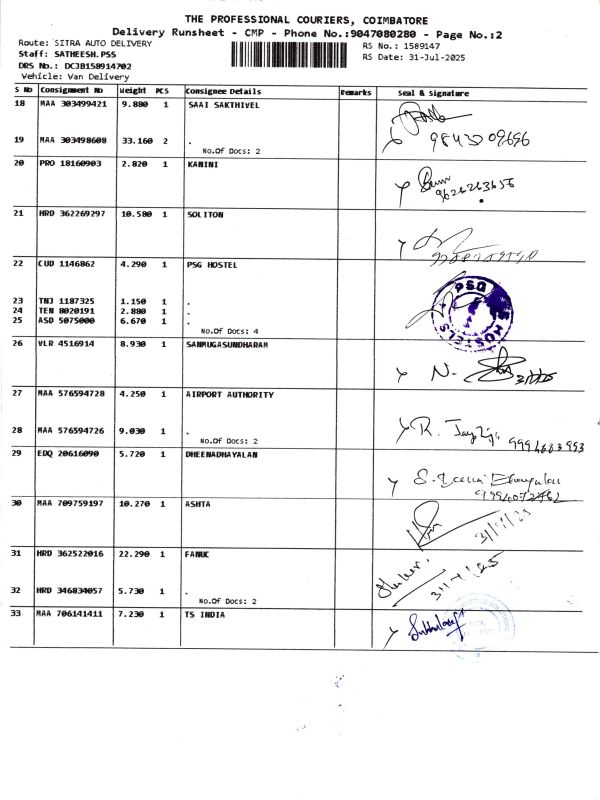 THE PROFESSIONAL COURIERS, COIMBATORE
Delivery Runsheet - CMP - Phone No.:9047080280 - Page No.:2
Route: SITRA AUTO DELIVERY
RS No.: 1589147
Staff: SATHEESH.PSS
RS Date: 31-Jul-2025
DRS No.: DCJB158914702
Vehicle: Van Delivery
S No Consignment No Weight PCS Consignee Details Remarks Seal & Signature
18 MAA 303499421 9.880 1 SAAI SAKTHIVEL
19 MAA 303498608 33.160 2 .
No.Of Docs: 2
20 PRO 18160903 2.820 1 KANINI
21 HRD 362269297 10.580 1 SOLITON
22 CUD 1146862 4.290 1 PSG HOSTEL
23 TNJ 1187325 1.150 1 .
24 TEN 8020191 2.880 1 .
25 ASD 5075000 6.670 1 .
No.Of Docs: 4
PSG HOSTELS
26 VLR 4516914 8.930 1 SANMUGASUNDHARAM
N.
27 MAA 576594728 4.250 1 AIRPORT AUTHORITY
28 MAA 576594726 9.030 1 .
No.Of Docs: 2
R.
29 EDQ 20616090 5.720 1 DHEENADHAYALAN
30 MAA 709759197 10.270 1 ASHTA
31 HRD 362522016 22.290 1 FANUC
32 HRD 346834057 5.730 1 .
No.Of Docs: 2
33 MAA 706141411 7.230 1 TS INDIA